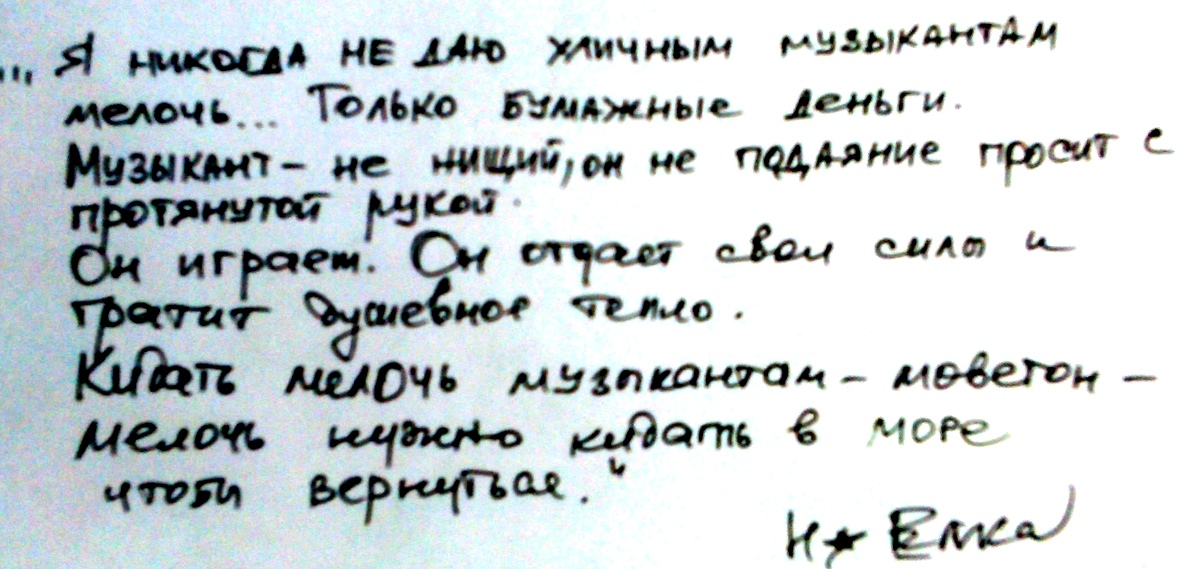 ... Я никогда не даю уличным музыкантам
мелочь... Только бумажные деньги.
Музыкант - не нищий, он не подаяние просит с
протянутой рукой.
Он играет. Он отдает свои силы и
тратит душевное тепло.
Кидать мелочь музыкантам - моветон -
мелочь нужно кидать в море
чтобы вернуться."
Н★ Ёлка